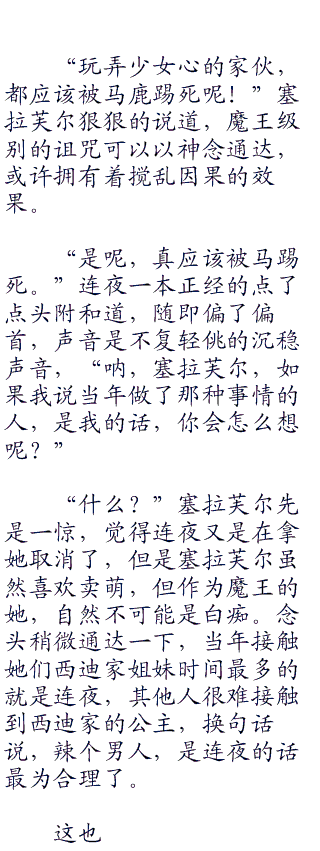 “玩弄少女心的家伙，
都应该被马鹿踢死呢！”塞
拉芙尔狠狠的说道，魔王级
别的诅咒可以以神念通达，
或许拥有着搅乱因果的效
果。
“是呢，真应该被马踢
死。”连夜一本正经的点了
点头附和道，随即偏了偏
首，声音是不复轻佻的沉稳
声音，“呐，塞拉芙尔，如
果我说当年做了那种事情的
人，是我的话，你会怎么想
呢？”
“什么？”塞拉芙尔先
是一惊，觉得连夜又是在拿
她取消了，但是塞拉芙尔虽
然喜欢卖萌，但作为魔王的
她，自然不可能是白痴。念
头稍微通达一下，当年接触
她们西迪家姐妹时间最多的
就是连夜，其他人很难接触
到西迪家的公主，换句话
说，辣个男人，是连夜的话
最为合理了。
这也